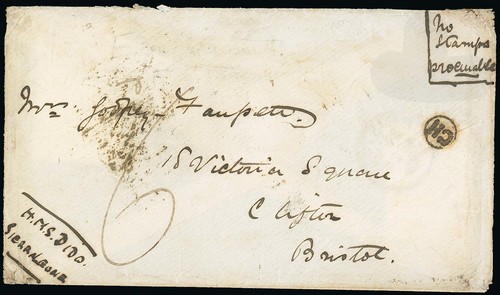 No
Stamps
procurable
Mrs. Godfrey Faussett.
15 Victoria Square
Clifton
Bristol.
6
H.M.S. DIDO.
SIERRA LEONE